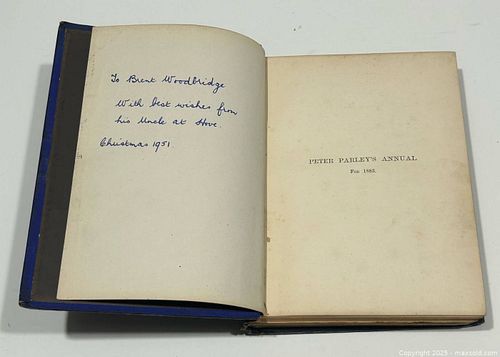 To Brent Woodbridge
With best wishes from
his Uncle at Hove.
Christmas 1951
PETER PARLEY'S ANNUAL
FOR 1883.
Copyright 2025 - maxsold.com